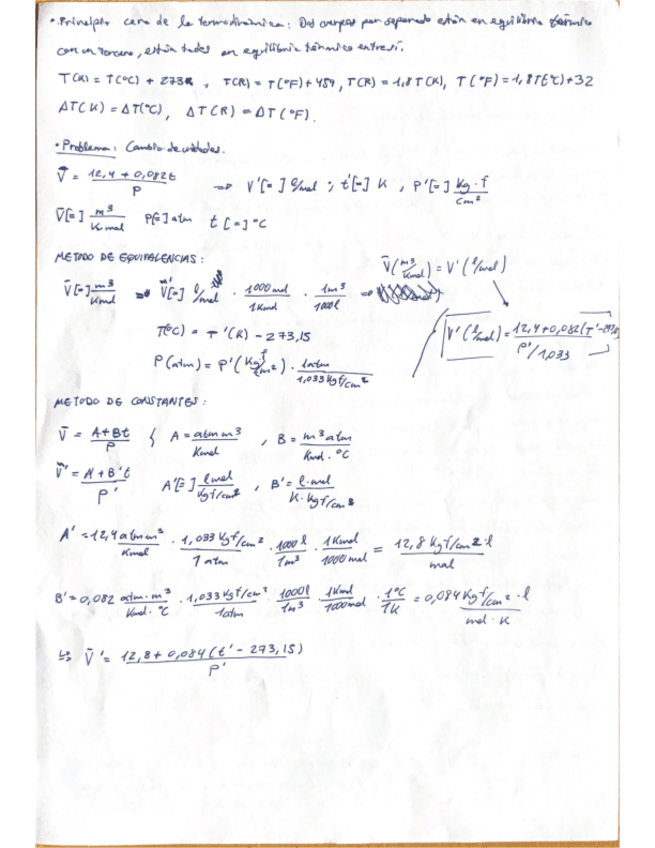 · Principio cero de la termodinámica: Dos cuerpos por separado están en equilibrio térmico
con un tercero, están todos en equilibrio térmico entre sí.
T(K) = T(ºC) + 273, T(R) = T(ºF) + 459, T(R) = 1,8 T(K), T(ºF) = 1,8 T(ºC) + 32
ΔT(K) = ΔT(ºC), ΔT(R) = ΔT(ºF).
· Problema: Cambio de unidades.
V̄ = (12,4 + 0,082t)/P ⇒ V'[=] l/mol ; t'[=] K , P'[=] Kg·f/cm²
V̄[=] m³/Kmol P[=] atm t[=] ºC
METODO DE EQUIVALENCIAS:
V̄[=] m³/Kmol ⇒ V̄'[=] l/mol · 1000 mol/1 Kmol · 1m³/1000l ⇒
V̄(m³/Kmol) = V'(l/mol)
T(ºC) = T'(K) - 273,15
P(atm) = P'(Kgf/cm²) · 1atm/1,033 Kgf/cm²
V'(l/mol) = (12,4 + 0,082(T' - 273,15))/(P'/1,033)
METODO DE CONSTANTES:
V̄ = (A + Bt)/P { A = atm m³/Kmol , B = m³ atm/Kmol·ºC
V̄' = (A' + B't)/P' A'[=] l mol/Kgf/cm² , B' = l·mol/K·Kgf/cm²
A' = 12,4 atm m³/Kmol · 1,033 Kgf/cm²/1 atm · 1000 l/1m³ · 1Kmol/1000 mol = 12,8 Kgf/cm² · l/mol
B' = 0,082 atm·m³/Kmol·ºC · 1,033 Kgf/cm²/1atm · 1000l/1m³ · 1Kmol/1000mol · 1ºC/1K = 0,084 Kgf/cm² · l/mol·K
↳ V̄' = (12,8 + 0,084(t' - 273,15))/P'